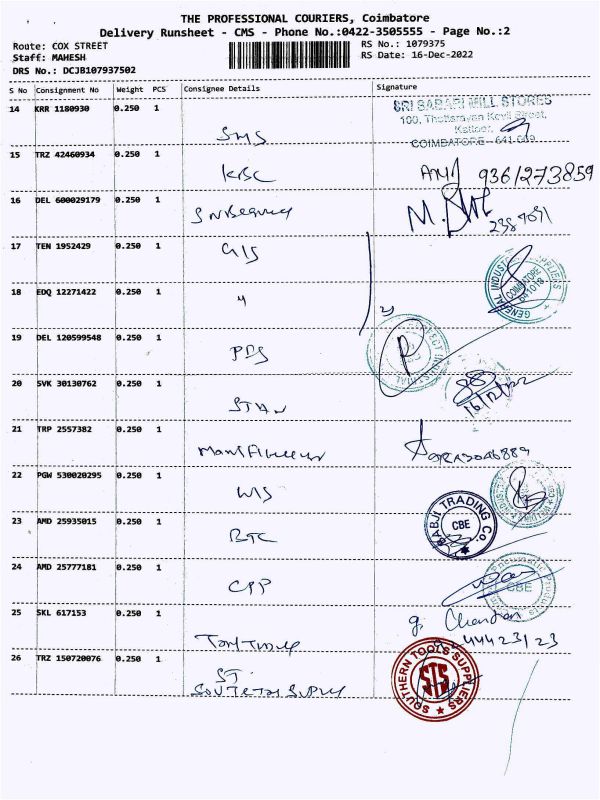 THE PROFESSIONAL COURIERS, Coimbatore
Delivery Runsheet - CMS - Phone No.:0422-3505555 - Page No.:2
Route: COX STREET
RS No.: 1079375
Staff: MAHESH
RS Date: 16-Dec-2022
DRS No.: DCJB107937502
S No Consignment No Weight PCS Consignee Details Signature
14 KRR 1180930 0.250 1
SRI SABARI MILL STORES
100, Thottarayan Kovil Street,
Kattoor,
COIMBATORE - 641 009
SMS
15 TRZ 42460934 0.250 1
KBC 9361273859
16 DEL 600029179 0.250 1
17 TEN 1952429 0.250 1
GIS
GENERAL INDUSTRIAL SUPPLIERS
COIMBATORE
641018
18 EDQ 12271422 0.250 1
"
19 DEL 120599548 0.250 1
PDS
20 SVK 30130762 0.250 1
16/12/22
21 TRP 2557382 0.250 1
22 PGW 530020295 0.250 1
WIS
23 AMD 25935015 0.250 1
BABJI TRADING Co.
CBE
BTC
24 AMD 25777181 0.250 1
CPP
CBE
25 SKL 617153 0.250 1
g. Chandran
44423123
26 TRZ 150720076 0.250 1
ST.
SOUTHERN TOOLS SUPPLIERS
STS